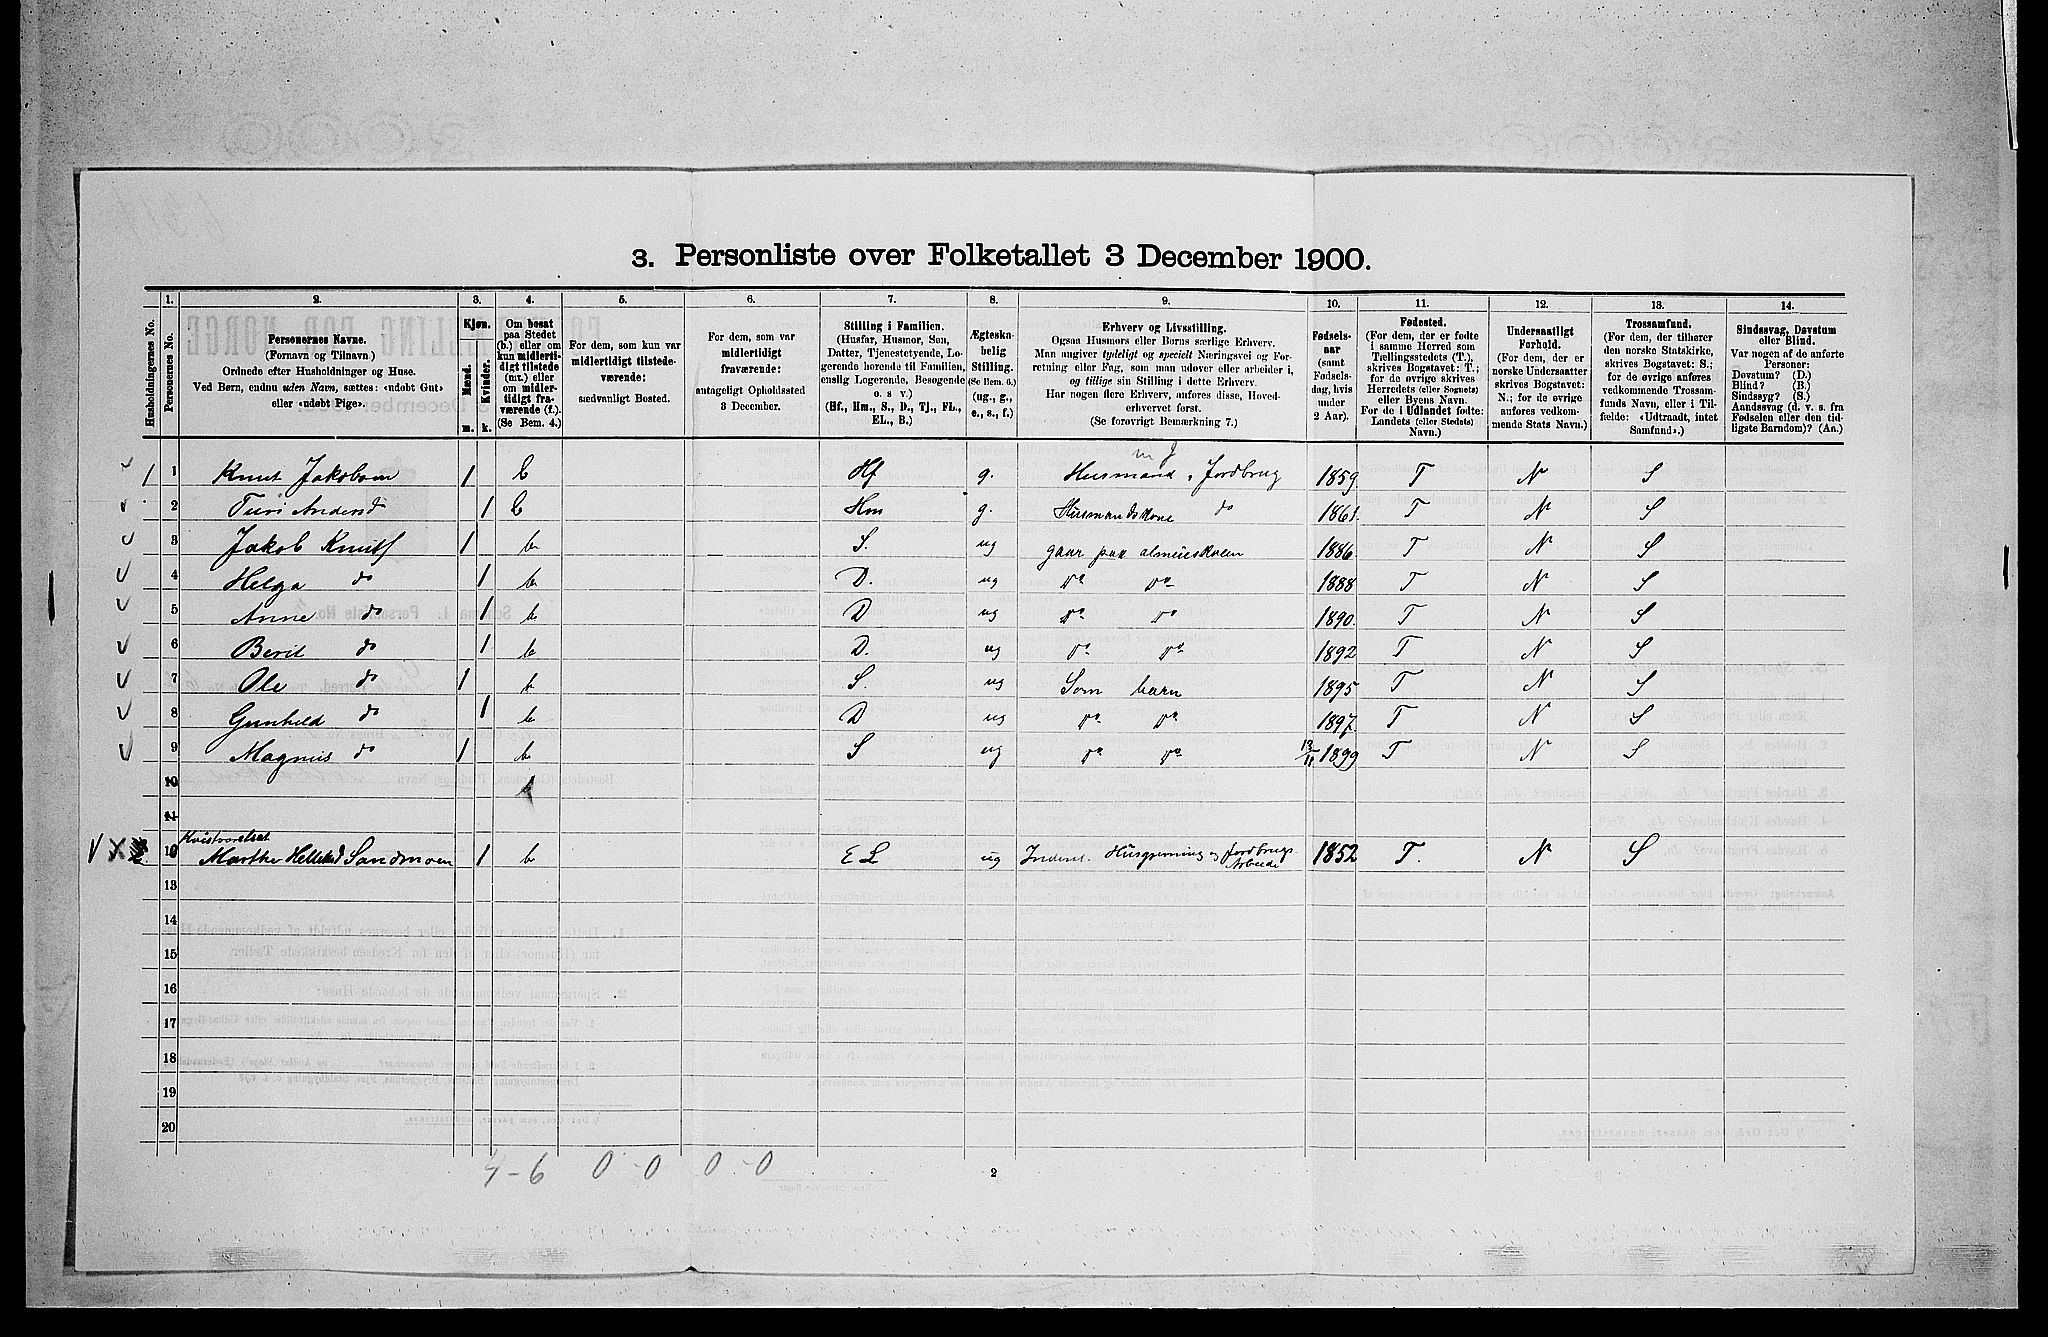 3. Personliste over Folketallet 3 December 1900.
1. 2. 3. 4. 5. 6. 7. 8. 9. 10. 11. 12. 13. 14.
Husholdningernes No.
Personernes No.
Personernes Navne.
(Fornavn og Tilnavn.)
Ordnede efter Husholdninger og Huse.
Ved Børn, endnu uden Navn, sættes: «udøbt Gut»
eller «udøbt Pige».
Kjøn.
Mænd.
Kvinder.
m. k.
Om bosat
paa Stedet
(b.) eller om
kun midlerti-
digt tilstede
(mt.) eller
om midler-
tidigt fra-
værende (f.)
(Se Bem. 4.)
For dem, som kun var
midlertidigt tilstede-
værende:
sædvanligt Bosted.
For dem, som var
midlertidigt
fraværende:
antageligt Opholdssted
3 December.
Stilling i Familien.
(Husfar, Husmor, Søn,
Datter, Tjenestetyende, Lo-
gerende hørende til Familien,
enslig Logerende, Besøgende
o. s v.)
(Hf., Hm., S., D., Tj., FL.,
EL., B.)
Ægteska-
belig
Stilling.
(Se Bem. 6.)
(ug., g.,
e., s., f.)
Erhverv og Livsstilling.
Ogsaa Husmors eller Børns særlige Erhverv.
Man angiver tydeligt og specielt Næringsvei og For-
retning eller Fag, som man udøver eller arbeider i,
og tillige sin Stilling i dette Erhverv.
Har nogen flere Erhverv, anføres disse, Hoved-
erhvervet først.
(Se forøvrigt Bemærkning 7.)
Fødsels-
aar
(samt
Fødsels-
dag, hvis
under
2 Aar).
Fødested.
(For dem, der er fødte
i samme Herred som
Tællingsstedets (T.),
skrives Bogstavet: T.;
for de øvrige skrives
Herredets (eller Sognets)
eller Byens Navn.
For de i Udlandet fødte:
Landets (eller Stedets)
Navn.)
Undersaatligt
Forhold.
(For dem, der er
norske Undersaatter
skrives Bogstavet:
N.; for de øvrige
anføres vedkom-
mende Stats Navn.)
Trossamfund.
(For dem, der tilhører
den norske Statskirke,
skrives Bogstavet: S.;
for de øvrige anføres
vedkommende Trossam-
funds Navn, eller i Til-
fælde: «Udtraadt, intet
Samfund».)
Sindssvag, Døvstum
eller Blind.
Var nogen af de anførte
Personer:
Døvstum? (D.)
Blind? (B.)
Sindssyg? (S.)
Aandssvag (d. v. s. fra
Fødselen eller den tid-
ligste Barndom)? (Aa.)
1 1 Knut Jakobsen 1 b Hf g. Husmand, Jordbrug 1859 T N S
2 Turi Andersd 1 b Hm g. Husmandskone do 1861. T N S
3 Jakob Knuts 1 b S. ug gaar paa almueskolen 1886. T N S
4 Helga do 1 b D. ug do do 1888 T N S
5 Anne do 1 b D ug do do 1890. T N S
6 Berit do 1 b D. ug do do 1892 T N S
7 Ole do 1 b S. ug Som barn 1895 T N S
8 Gunhild do 1 b D ug do do 1897. T N S
9 Magnus do 1 b S ug do do 13/11 1899 T N S
10
11
Kvistværelset
12 Marthe Sandmoen 1 b E L ug Inderst. Husgjerning og Jordbrugs- Arbeide 1852 T. N S
13
14
15
16
17
18
19
20
4 - 6 0 - 0 0 - 0
2